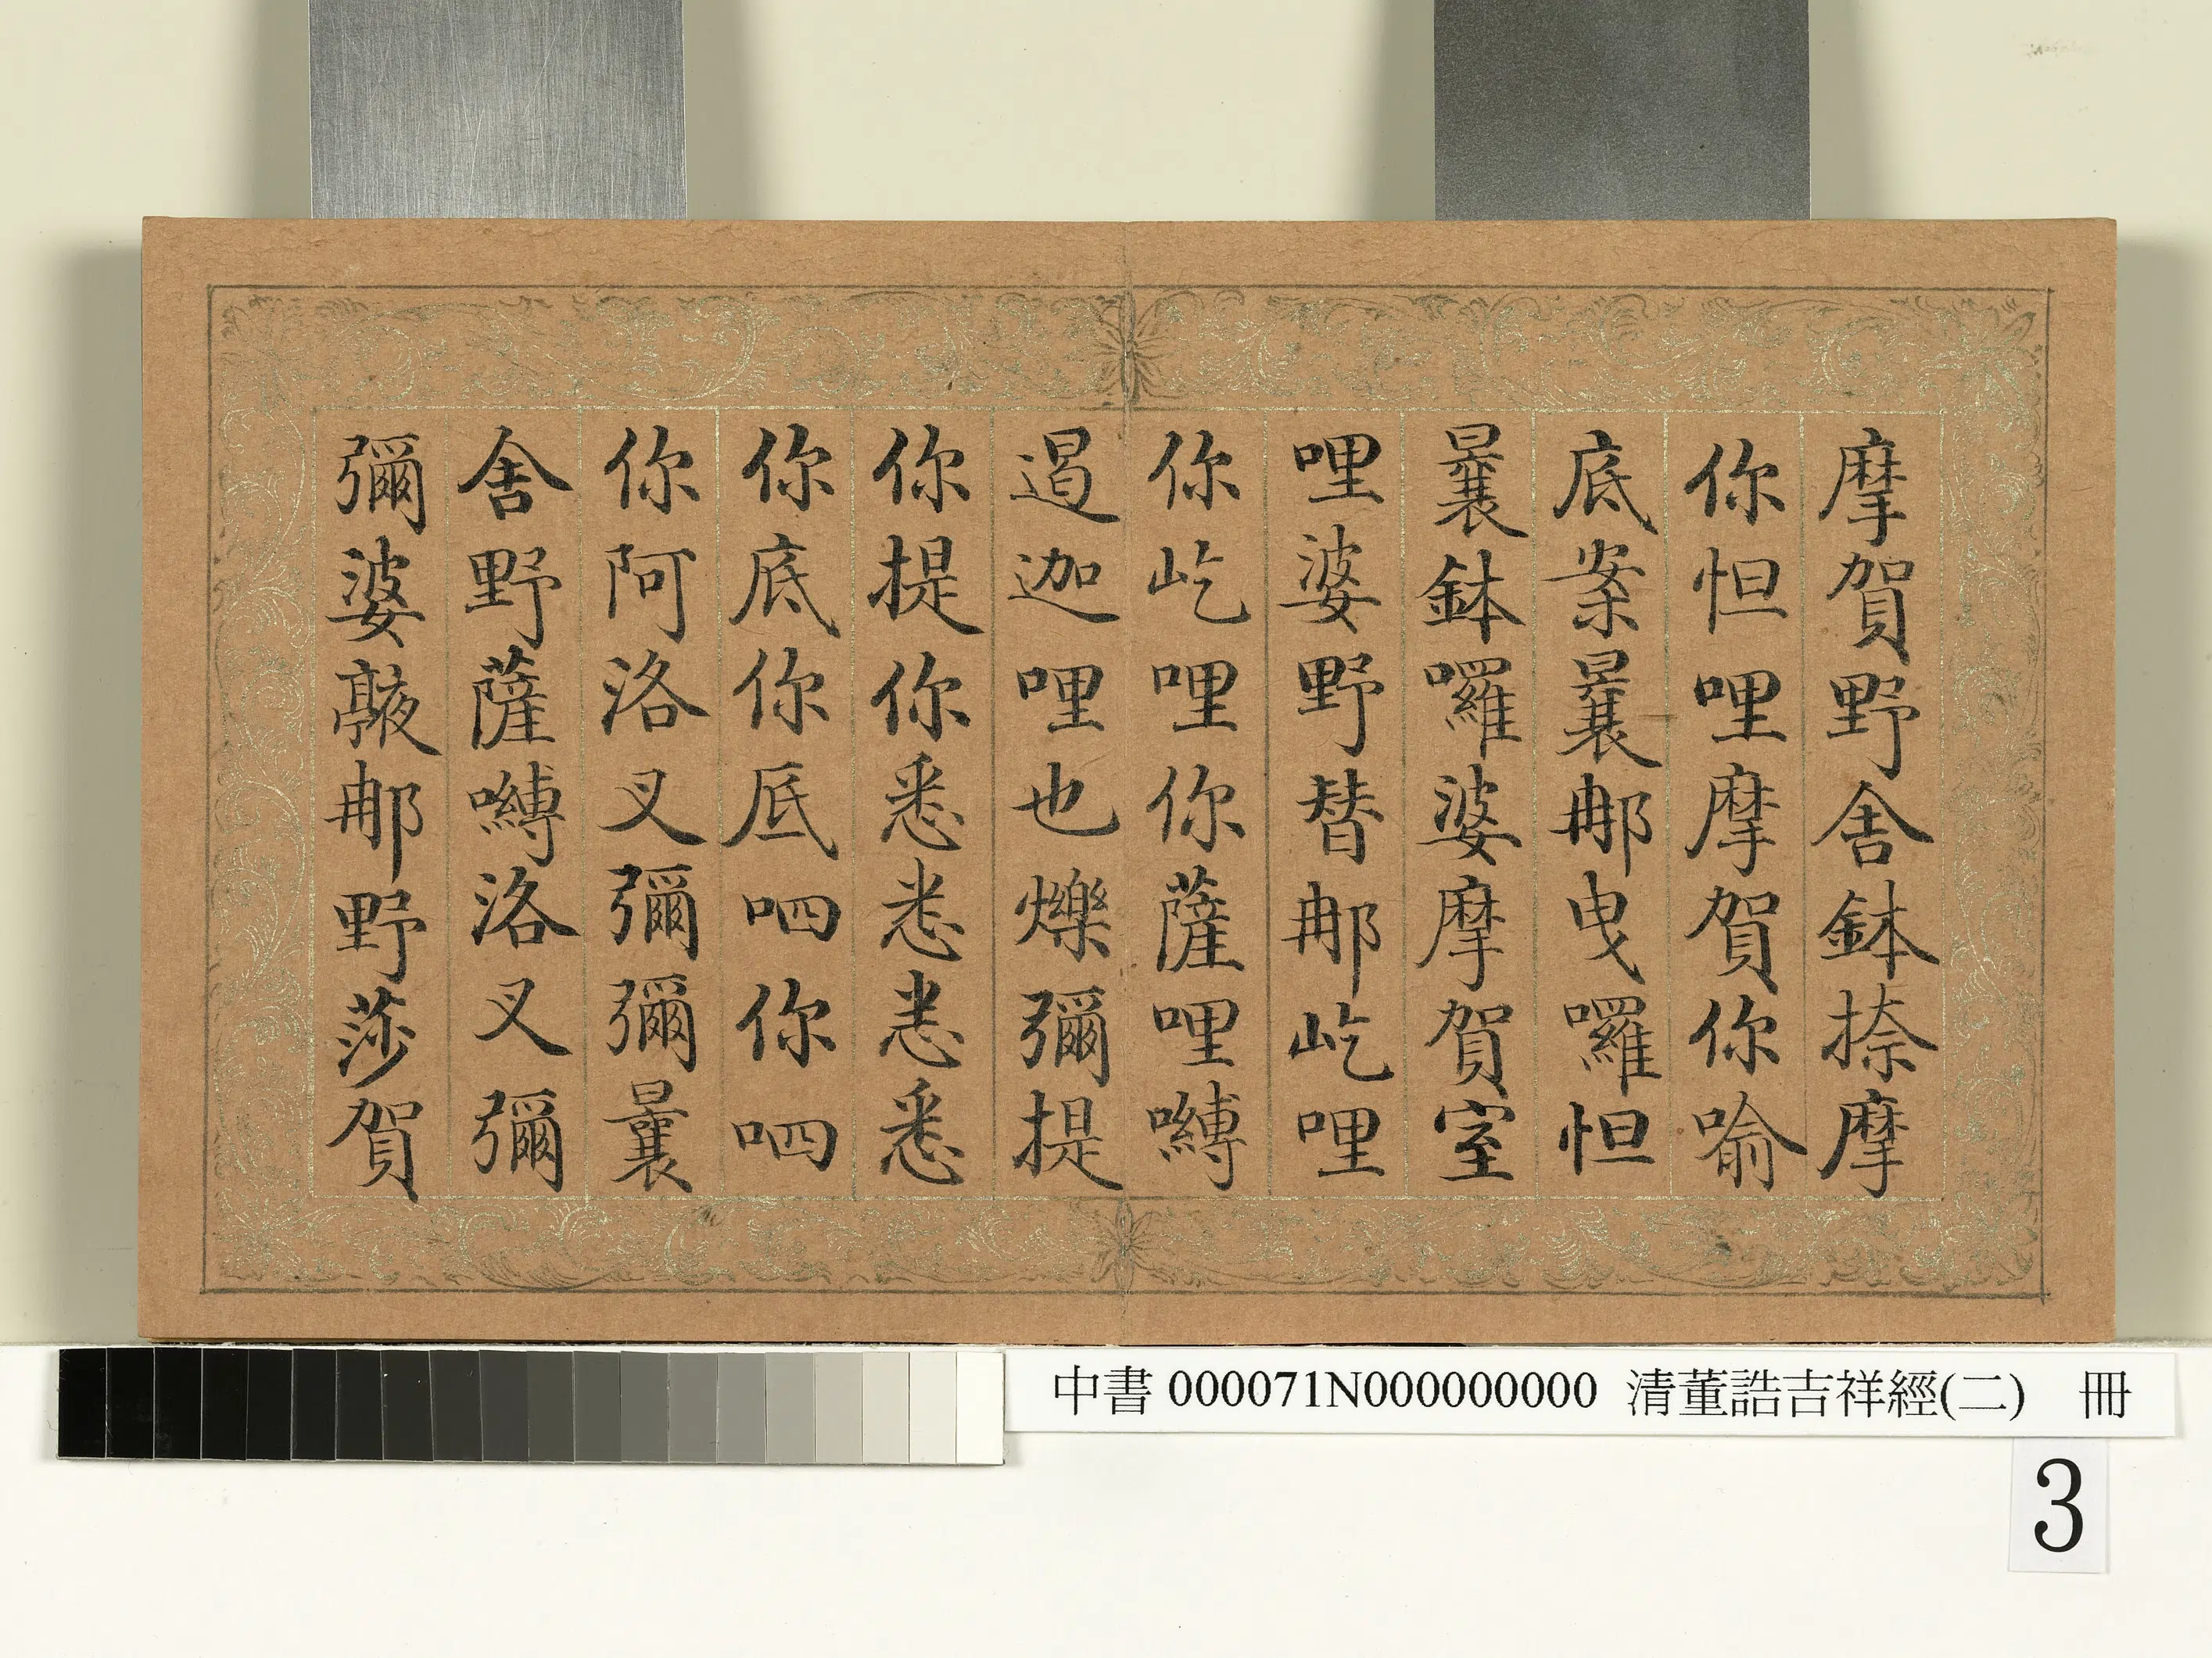 摩賀野舍鉢捺摩
你怛哩摩賀你喻
底案曩那曳囉怛
曩鉢囉婆摩賀室
哩婆野替那屹哩
你屹哩你薩哩嚩
遏迦哩也爍彌提
你提你悉悉悉悉
你底你底呬你呬
你阿洛叉彌彌曩
舍野薩嚩洛叉彌
彌婆那野莎賀
中書 000071N000000000 清董誥吉祥經(二) 冊
3